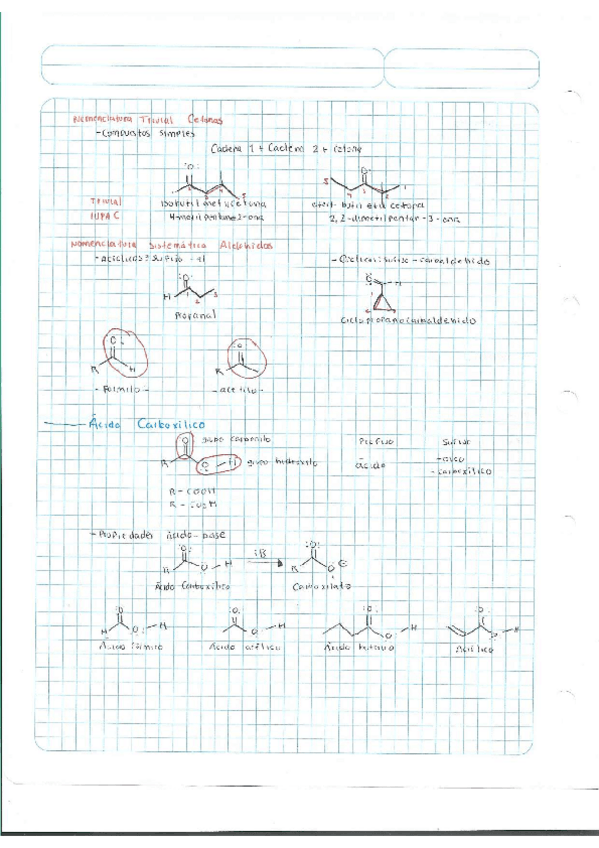 Nomenclatura Trivial Cetonas
- Compuestos simples
Cadena 1 + Cadena 2 + cetona
Trivial
IUPAC
isobutil metil cetona
4-metil pentano 2-ona
butil etil cetona
2,2-dimetil pentan-3-ona
Nomenclatura Sistemática Aldehidos
- aciclicos: sufijo -al
- Ciclicos: sufijo - carbaldehido
Propanal
Ciclopropanocarbaldehido
- Formilo -
- acetilo -
Ácido Carboxilico
grupo carbonilo
grupo hidroxilo
Prefijo
Sufijo
ácido
-oico
- carboxilico
R - COOH
R - CO2H
- Propiedades ácido-base
:B
Ácido Carboxilico
Carboxilato
Ácido fórmico
Ácido acético
Ácido butano
Acrílico